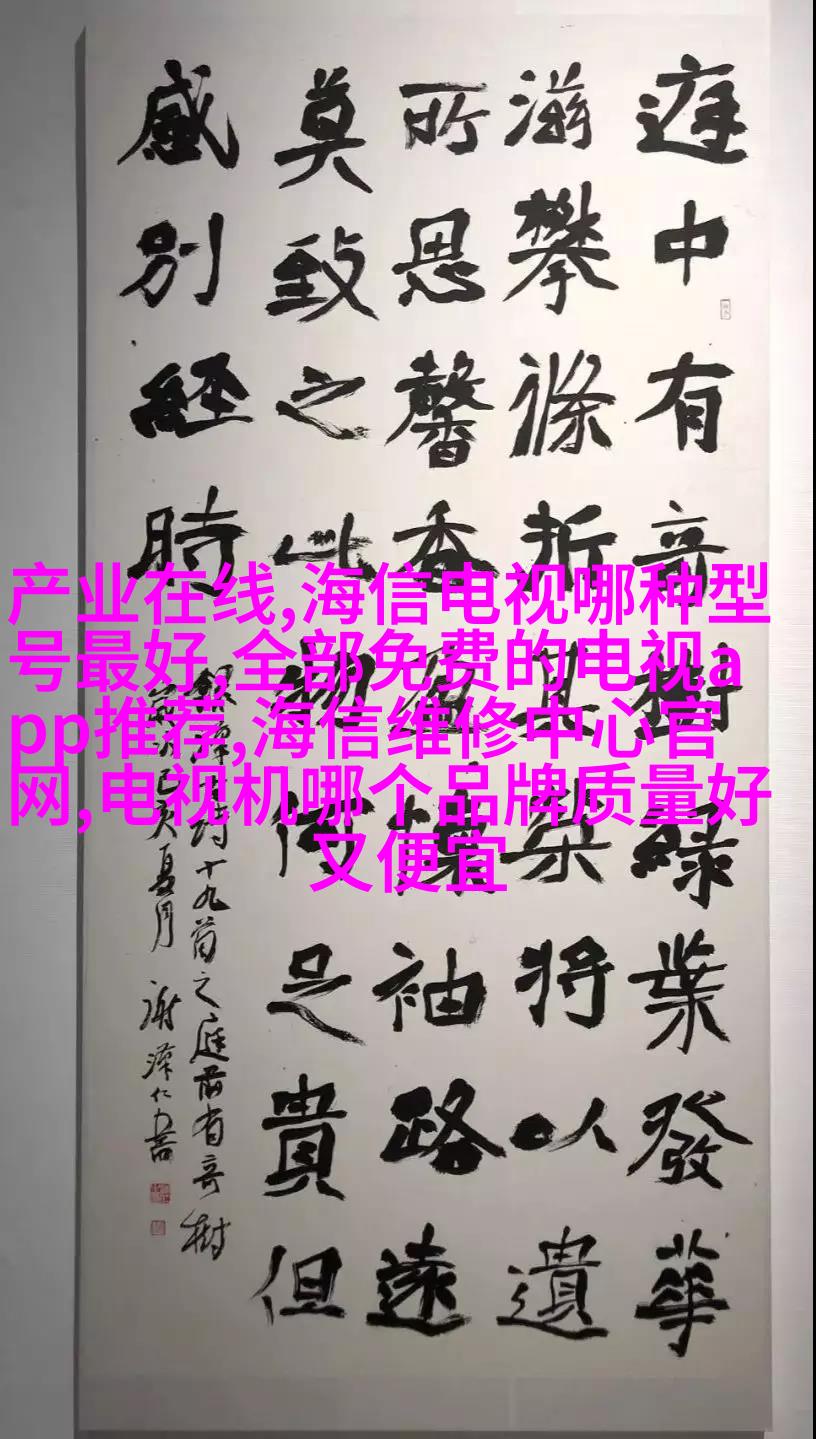 庭中有奇樹綠葉發華
滋攀條折其榮將以遺
所思馨香盈懷袖路遠
莫致之此物何足貴但
感別經時
詩十九首之庭前有奇樹
己亥夏月 謝澤仁書
产业在线,海信电视哪种型
号最好,全部免费的电视a
pp推荐,海信维修中心官
网,电视机哪个品牌质量好
又便宜